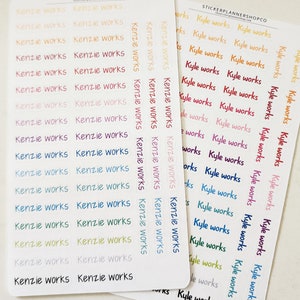 STICKERPLANNERSHOPCO
Kenzie works Kenzie works
Kenzie works Kenzie works
Kenzie works Kenzie works
Kenzie works Kenzie works
Kenzie works Kenzie works
Kenzie works Kenzie works
Kenzie works Kenzie works
Kenzie works Kenzie works
Kenzie works Kenzie works
Kenzie works Kenzie works
Kenzie works Kenzie works
Kenzie works Kenzie works
Kenzie works Kenzie works
Kenzie works Kenzie works
Kenzie works Kenzie works
Kenzie works Kenzie works
Kenzie works Kenzie works
Kenzie works Kenzie works
Kenzie works Kenzie works Kenzie works
Kenzie works Kenzie works Kenzie works
Kenzie works Kenzie works Kenzie works
Kenzie works Kenzie works Kenzie works
Kyle works Kyle works
Kyle works Kyle works
Kyle works Kyle works
Kyle works Kyle works
Kyle works Kyle works
Kyle works Kyle works
Kyle works Kyle works
Kyle works Kyle works
Kyle works Kyle works
Kyle works Kyle works
Kyle works
Kyle works
Kyle works
Kyle works
Kyle works